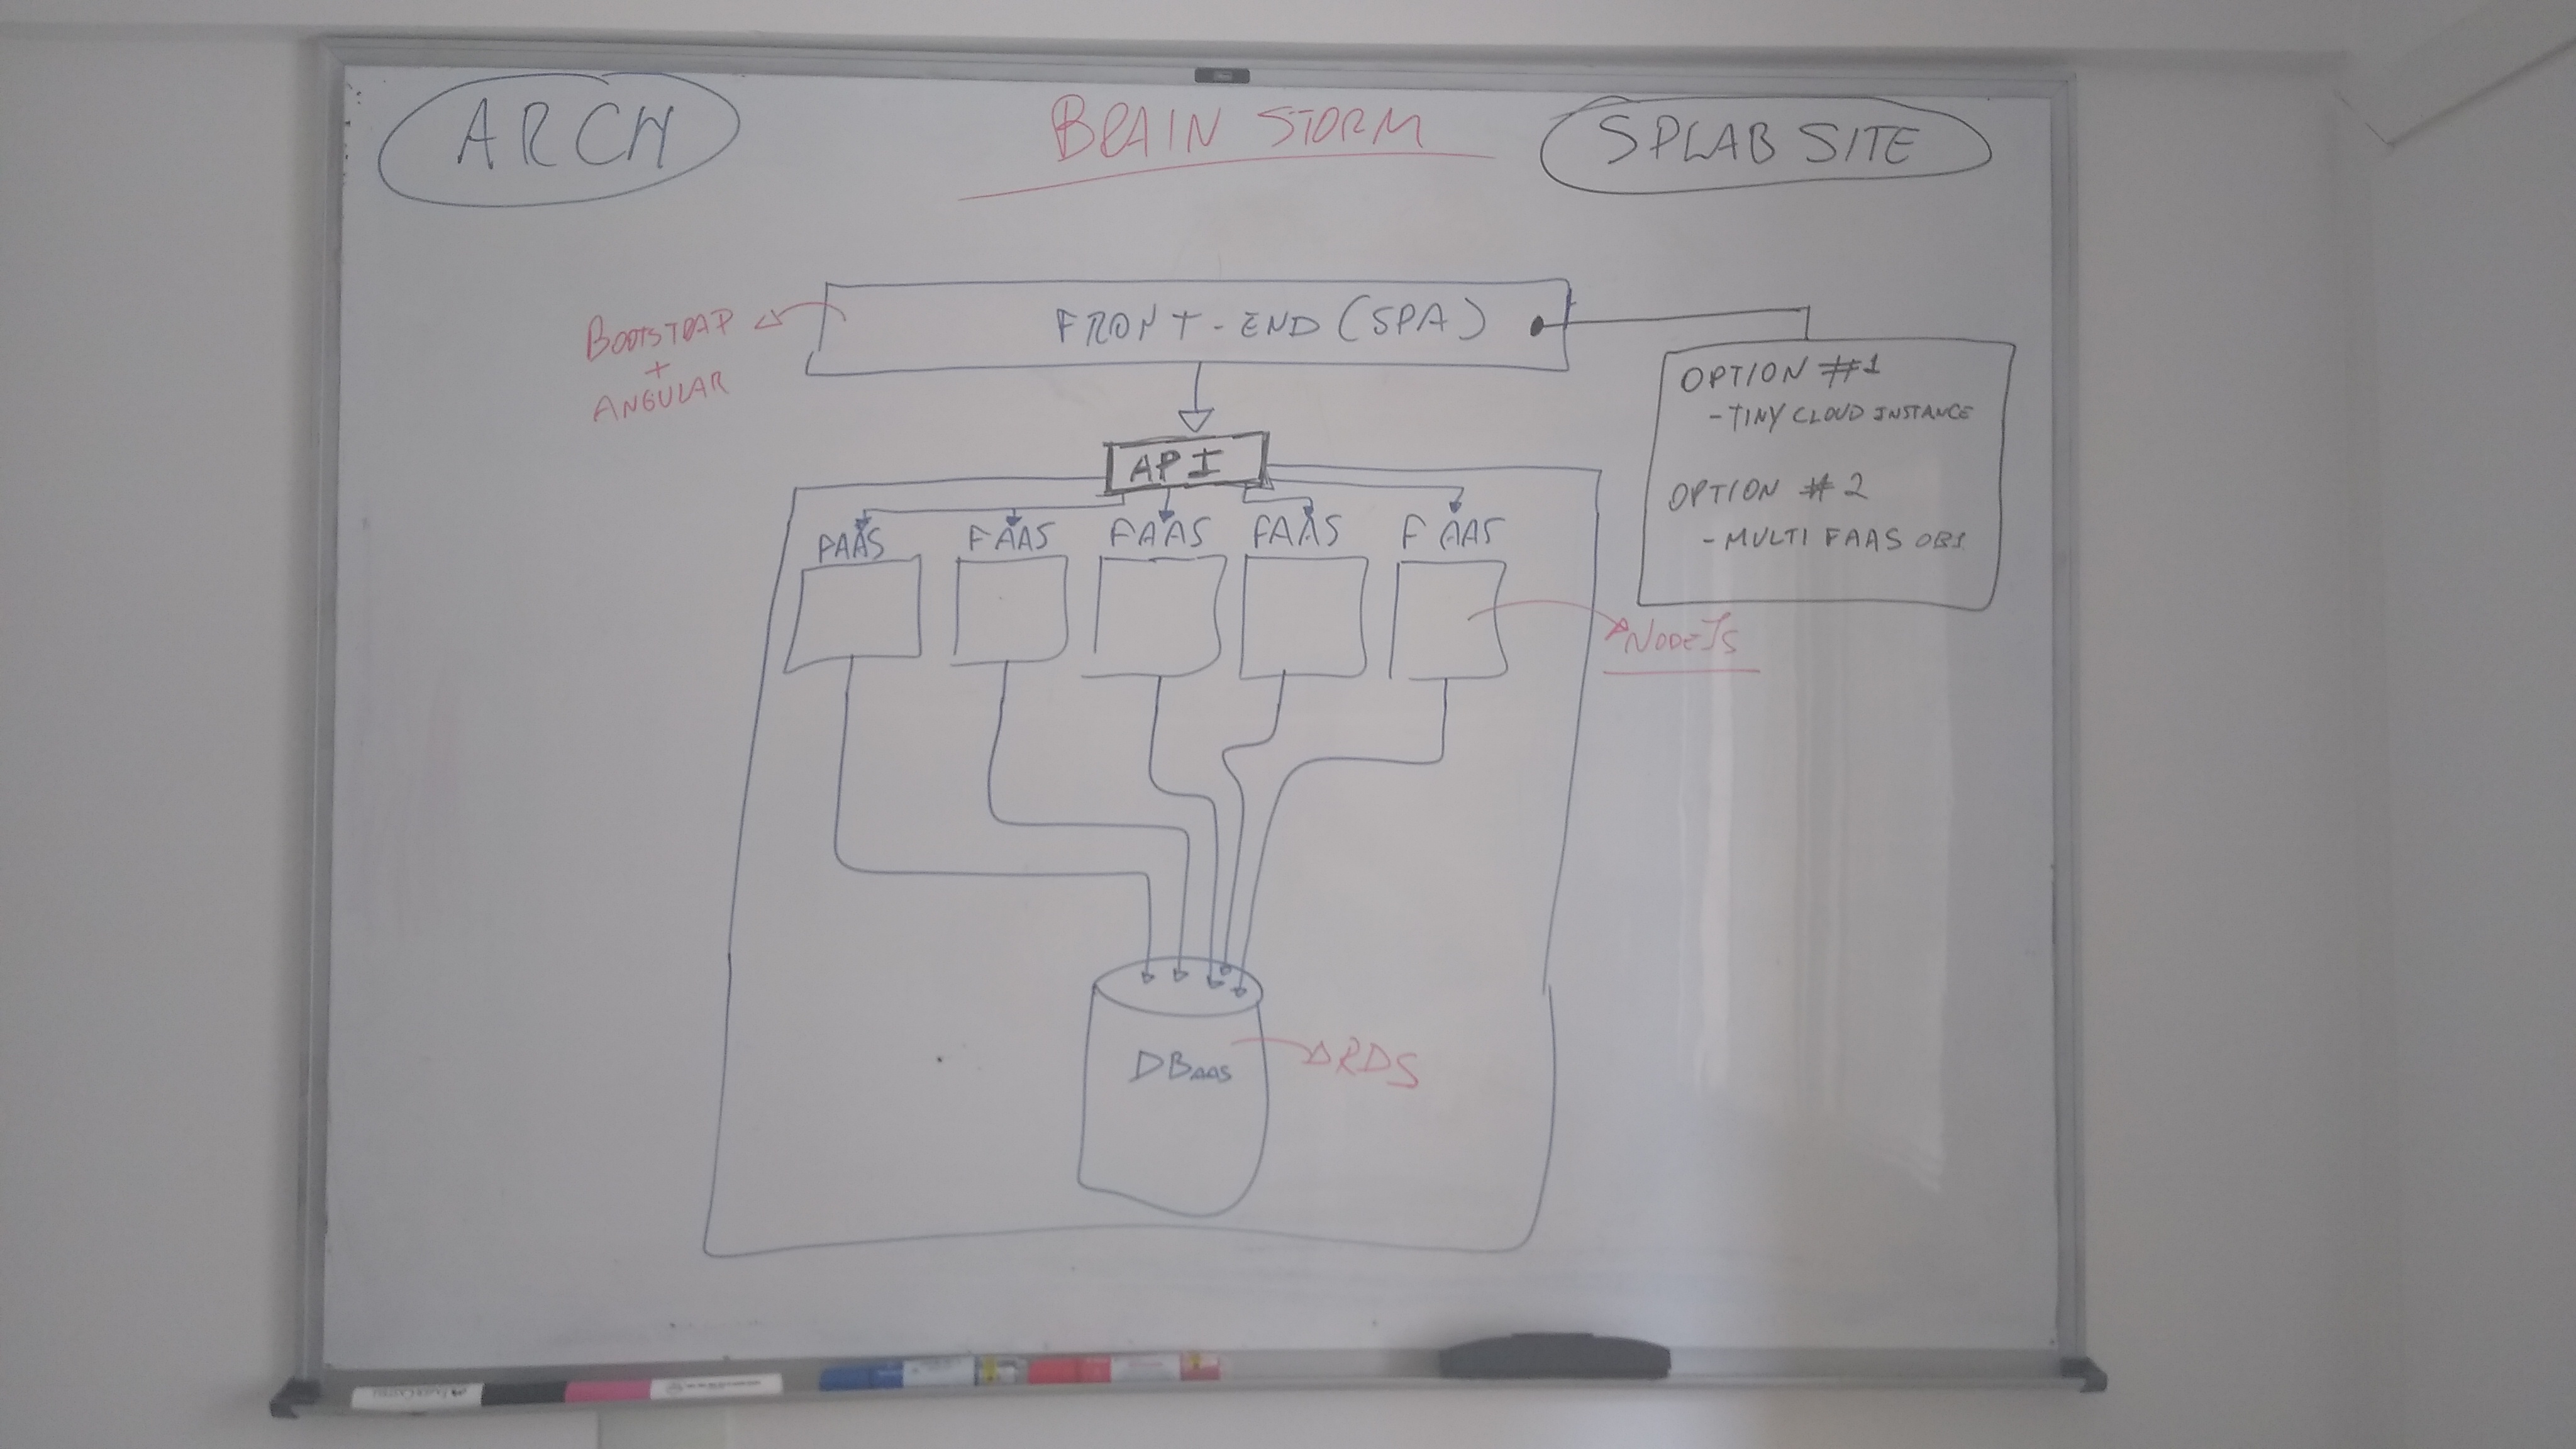 ARCH
BRAIN STORM
SPLAB SITE
FRONT-END (SPA)
BOOTSTRAP
+
ANGULAR
OPTION #1
- TINY CLOUD INSTANCE
OPTION #2
- MULTI FAAS
API
FAAS FAAS FAAS FAAS FAAS
NODEJS
DBAAS
RDS